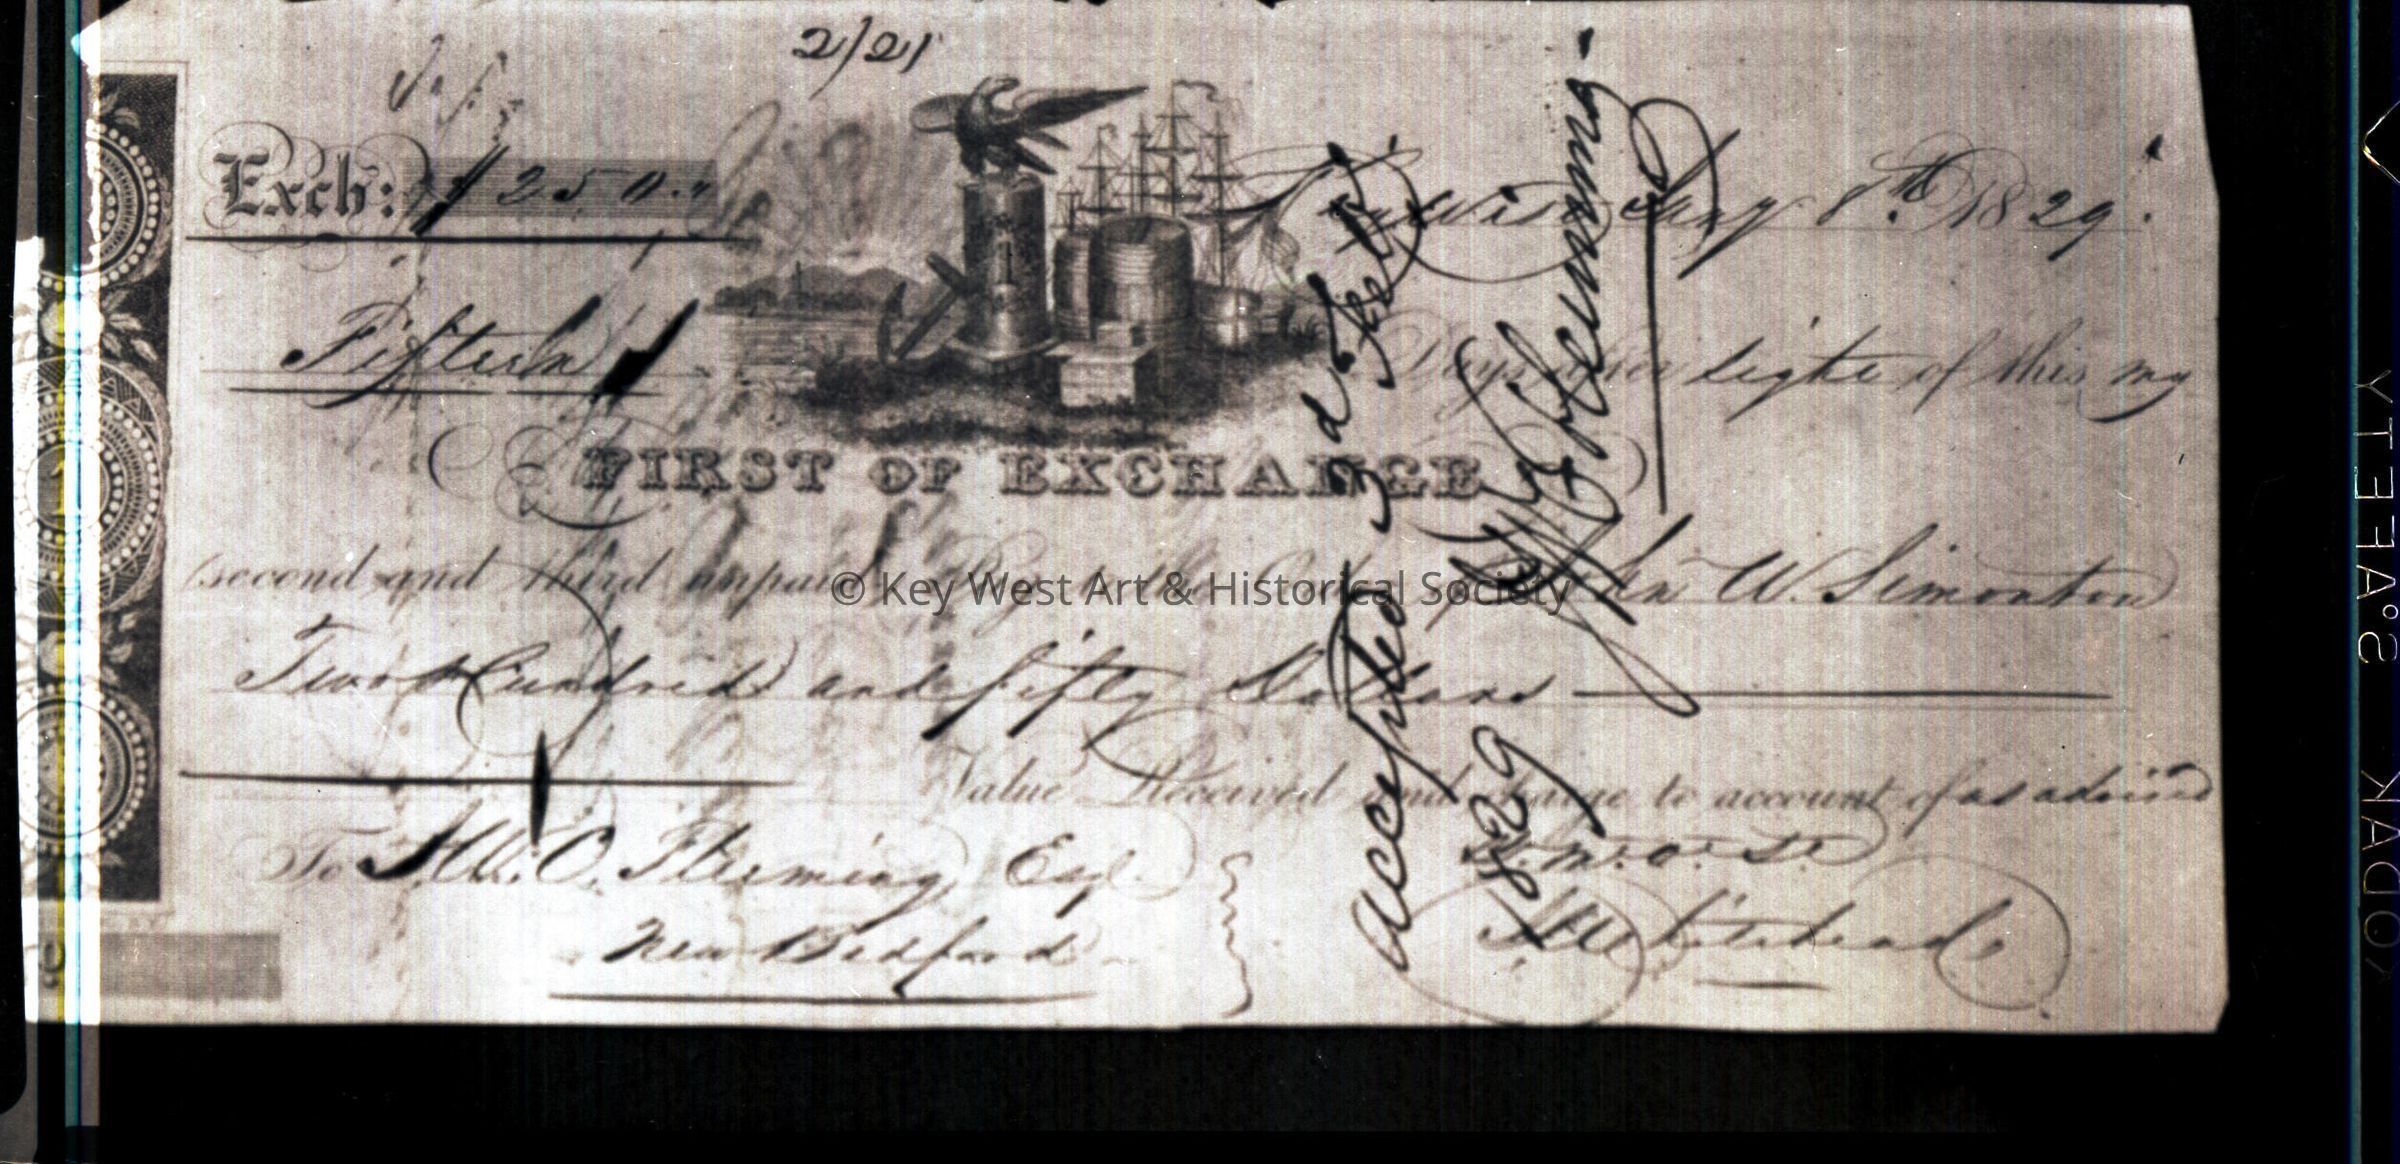 2/21
Exch: $ 250..
Key West Jany 8th 1829.
Fifteen Days after sight of this my
FIRST OF EXCHANGE
(second and third unpaid) Pay to the Order of John W. Simonton
Two Hundred and fifty Dollars
Value Received and charge to account of as advised
To J. W. C. Fleming Esqr.
New Bedford
Whitehead
accepted 3d Feby
1829
Fleming
© Key West Art & Historical Society
KODAK SAFETY